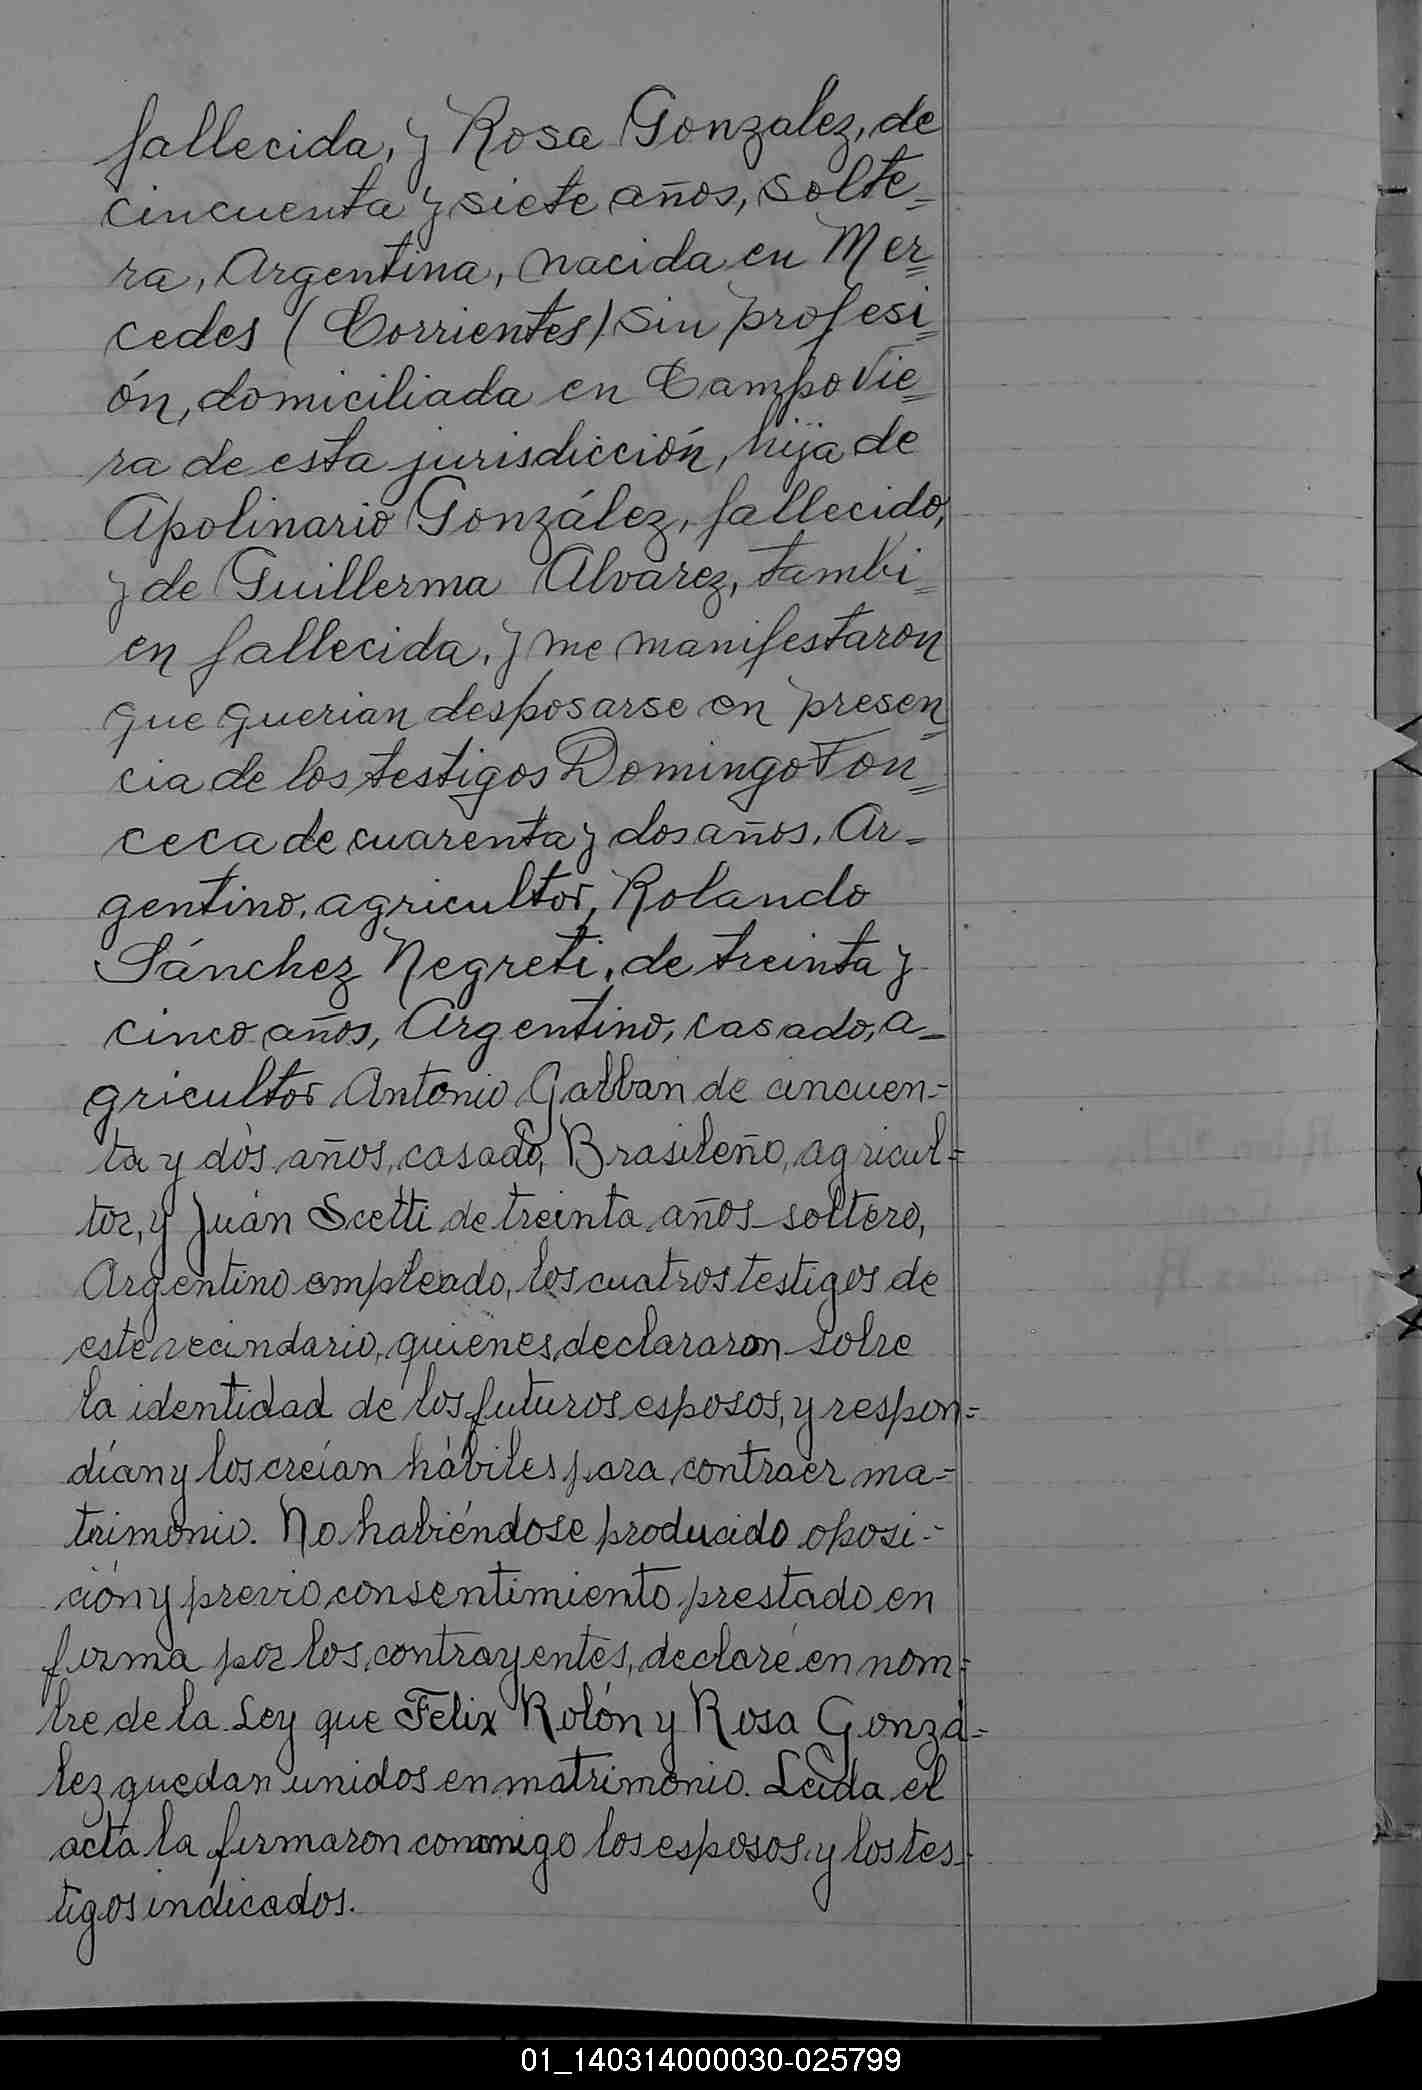 fallecida, y Rosa Gonzalez, de
cincuenta y siete años, solte=
ra, Argentina, nacida en Mer=
cedes (Corrientes) sin profesi=
ón, domiciliada en Campo Vie=
ra de esta jurisdicción, hija de
Apolinario González, fallecido,
y de Guillerma Alvarez, tambi=
en fallecida, y me manifestaron
que querian desposarse en presen=
cia de los testigos Domingo Fon=
ceca de cuarenta y dos años, Ar=
gentino, agricultor, Rolando
Sánchez Negreti, de treinta y
cinco años, Argentino, casado, a=
gricultor Antonio Galban de cincuen=
ta y dós años, casado, Brasileño, agricul=
tor, y Juán Scetti de treinta años soltero,
Argentino empleado, los cuatros testigos de
este vecindario, quienes declararon sobre
la identidad de los futuros esposos, y respon=
dían y los creían hábiles para contraer ma=
trimonio. No habiéndose producido oposi=
ción y previo consentimiento prestado en
firma por los contrayentes, declaré en nom=
bre de la Ley que Felix Rolón y Rosa Gonzá=
lez quedan unidos en matrimonio. Leida el
acta la firmaron conmigo los esposos y los tes=
tigos indicados.
01_140314000030-025799